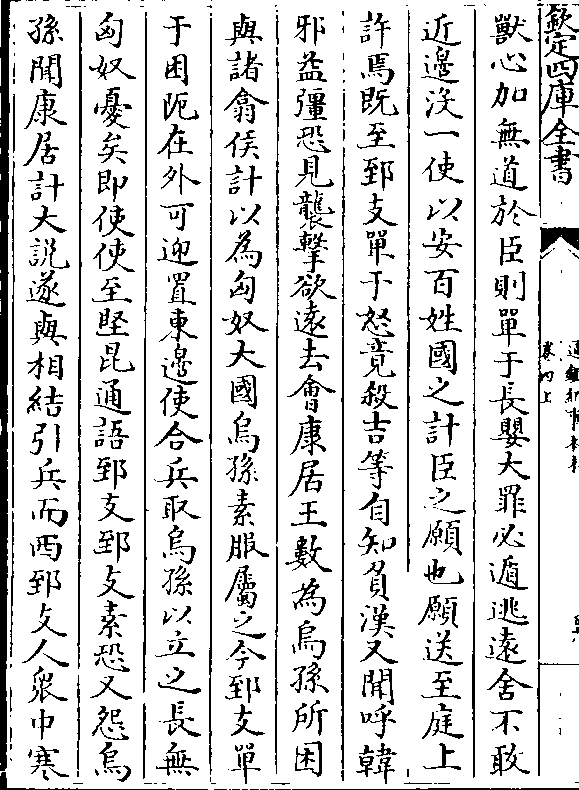 欽定四庫全書
卷四上
獸心加無道於臣則單于長嬰大罪必遁逃遠舍不敢
近邉沒一使以安百姓國之計臣之願也願送至庭上
許焉既至郅支單于怒竟殺吉等自知負漢又聞呼韓
邪益彊恐見襲擊欲遠去會康居王數為烏孫所困
與諸翕侯計以為匈奴大國烏孫素服屬之今郅支單
于困阨在外可迎置東邉使合兵取烏孫以立之長無
匈奴憂矣即使使至堅昆通語郅支郅支素恐又怨烏
孫聞康居計大説遂與相結引兵而西郅支人衆中寒